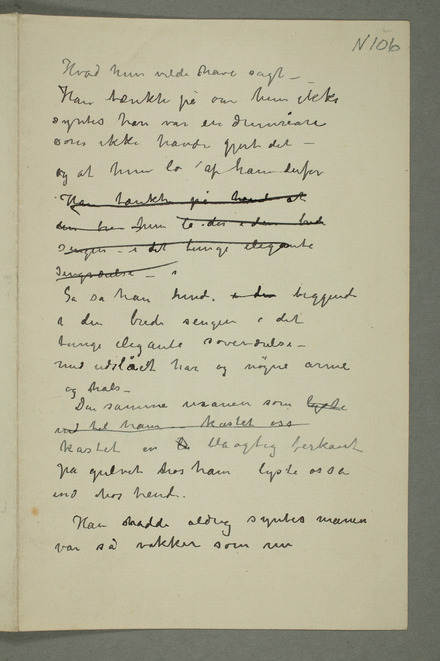 N 106
Hvad hun vilde have sagt –
Han tænkte på om hun ikke
syntes han var en
som ikke havde gjort det –
og at hun lo af ham derfor
Han tænkte på hende at
hun lo der i den brede
sengen – i det tunge elegante
Så så han hende liggende
i den brede sengen i det
tunge elegante soveværelse –
med udslået hår og nøgne arme
og hals –
Den samme månen som lyste
ind til ham – kastet oss
kastet en blaagtig firkant
på gulvet hos ham lyste også
ind hos hende.
Han hadde aldrig syntes månen
var så vakker som nu